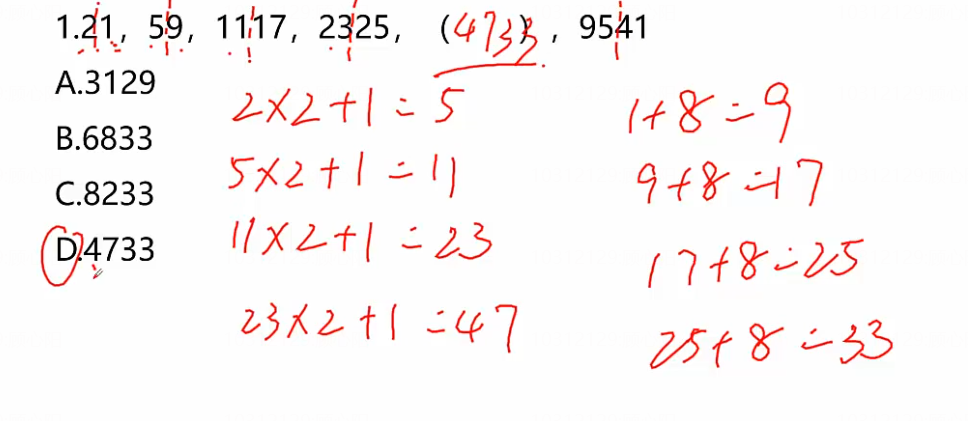 1.21, 59, 1117, 2325, (4733), 9541
A.3129
B.6833
C.8233
D.4733
2×2+1=5
5×2+1=11
11×2+1=23
23×2+1=47
1+8=9
9+8=17
17+8=25
25+8=33